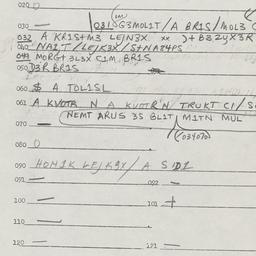 020 0
030 — 031 G3MOL1T/A BR1S/MOL3
032 A KR1S+M3 LEJN3X. xx )+B32YX3R
040 NA1T/LEJK3X/S+NA34PS
041 MORG+3L3X C1M. BR1S
050 D3R BR1S
060 $ A TOL1SL
061 A KVOTR N A KVOTR'N TRUKT C1/S
070 — (NEMT ARUS 3S BL1T) M1TN MUL
(034070)
080 0
090 HON1K LEJK3X/A S1D1
091 — 092 —
100 — 101 +
110 —
120 — 121 —